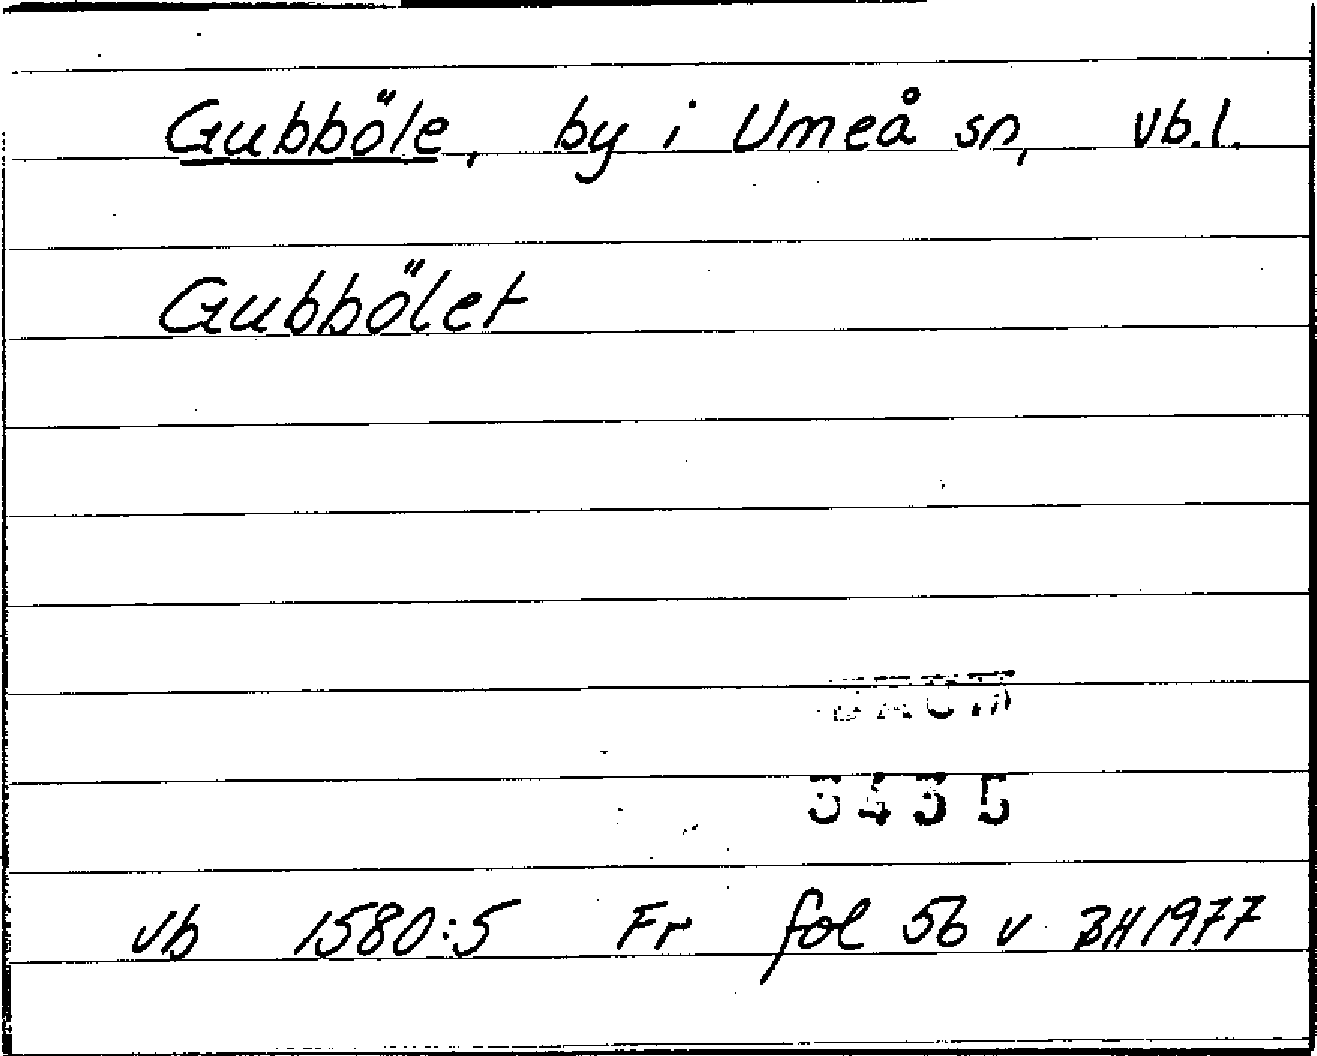 Gubböle, by i Umeå sn, vb.l.
Gubbölet
DAUM
3435
vb 1580:5 Fr fol 56 v BH 1977